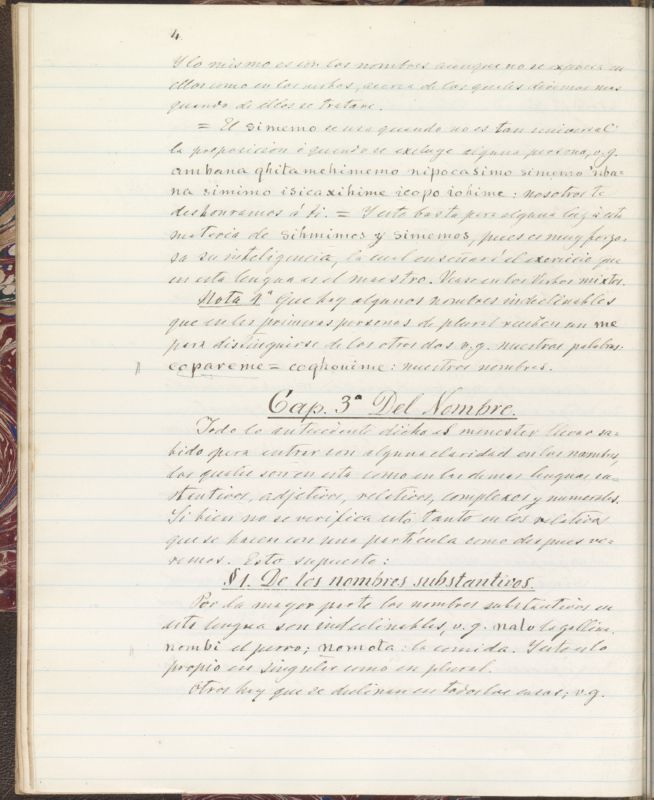 4.
Y lo mismo es con los nombres aunque no se experi en
ellos como en los verbos, acerca de los quales diremos mas
quando de ellos se tratare.
= El simemo se usa quando no es tan universal
la proposicion ó quando se excluye alguna persona, v.g.
ambana qhita mehimemo nipocasimo simemo nba-
na simimo isicaxihime icopo iohime: nosotros te
deshonramos á ti. = Y esto basta para alguna luz á esta
materia de sihmimos y simemos, pues es muy forzo-
sa su inteligencia, la cual enseñará el exercicio que
en esta lengua es el maestro. Vease en los Verbos mixtos.
Nota 4ª Que hay algunos nombres indeclinables
que en las primeras personas de plural reciben un me
para distinguirse de los otros dos v.g. nuestras palabras
copareme = coqhouime: nuestros nombres.
Cap. 3ª Del Nombre.
Todo lo antecedente dicho es menester llevar sa-
bido para entrar con alguna claridad en los nombres,
los quales son en esta como en las demas lenguas, su-
stantivos, adjetivos, relativos, complexos y numerales.
Si bien no se verifica esto tanto en los relativos
que se hacen con una partícula como despues ve-
remos. Esto supuesto:
§ 1. De los nombres substantivos.
Por la mayor parte los nombres substantivos en
esta lengua son indeclinables, v.g. nalo la gallina,
nombi el perro; nomota: la comida. Y esto
propio en singular como en plural.
Otros hay que se declinan en todos los casos; v.g.